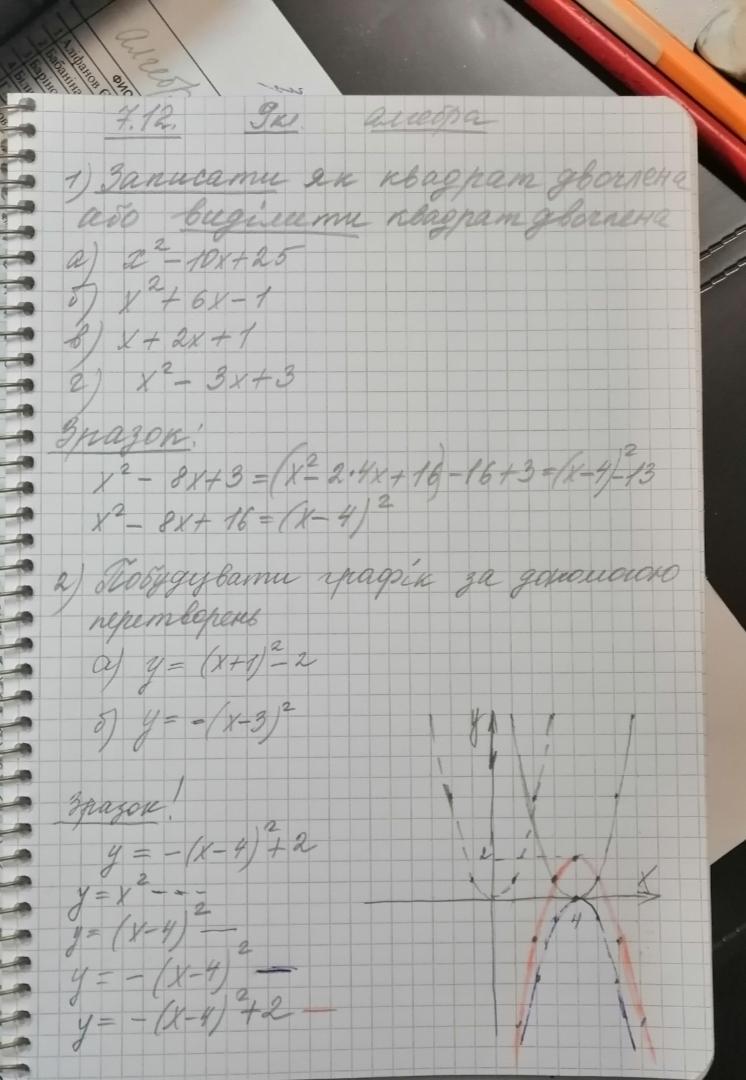 алгебр
ФИО
1 Аліфанов
2 Бабаніна
7.12. 9кл. алгебра
1) Записати як квадрат двочлена
або виділити квадрат двочлена
а) x² - 10x + 25
б) x² + 6x - 1
в) x + 2x + 1
г) x² - 3x + 3
Зразок!
x² - 8x + 3 = (x² - 2·4x + 16) - 16 + 3 = (x - 4)² - 13
x² - 8x + 16 = (x - 4)²
2) Побудувати графік за допомогою
перетворень
а) y = (x+1)² - 2
б) y = -(x-3)²
Зразок!
y = -(x-4)² + 2
y = x² ---
y = (x-4)² —
y = -(x-4)² —
y = -(x-4)² + 2 —
y
2
x
4